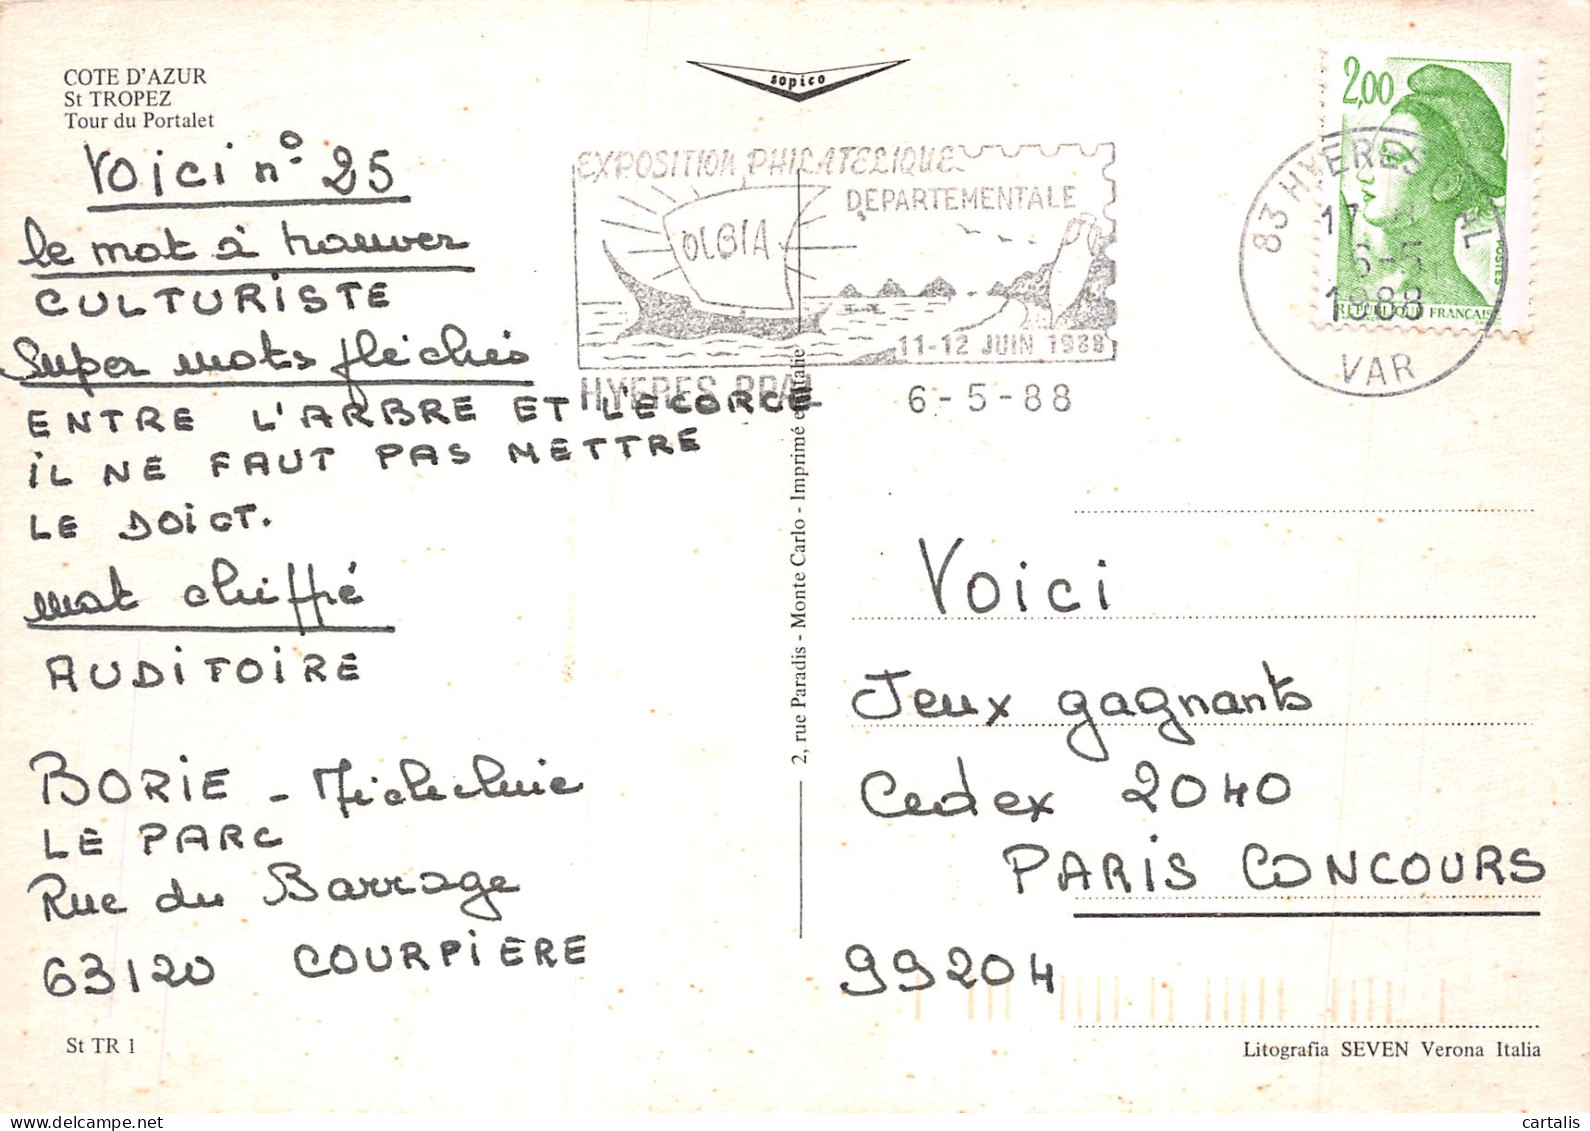 COTE D'AZUR
St TROPEZ
Tour du Portalet
sopico
Voici n° 25
le mot à trouver
CULTURISTE
Super mots fléchés
ENTRE L'ARBRE ET L'ECORCE
IL NE FAUT PAS METTRE
LE DOIGT.
mot chiffré
AUDITOIRE
BORIE -
LE PARC
Rue du Barrage
63120 COURPIERE
St TR 1
EXPOSITION PHILATELIQUE
DEPARTEMENTALE
OLBIA
11-12 JUIN 1988
HYERES PPAL
6-5-88
2,00
REPUBLIQUE FRANÇAISE
POSTES
83 HYERES PAL
17
6-5
1988
VAR
2, rue Paradis - Monte Carlo - Imprimé en Italie
Voici
Jeux gagnants
Cedex 2040
PARIS CONCOURS
99204
Litografia SEVEN Verona Italia
cartalis